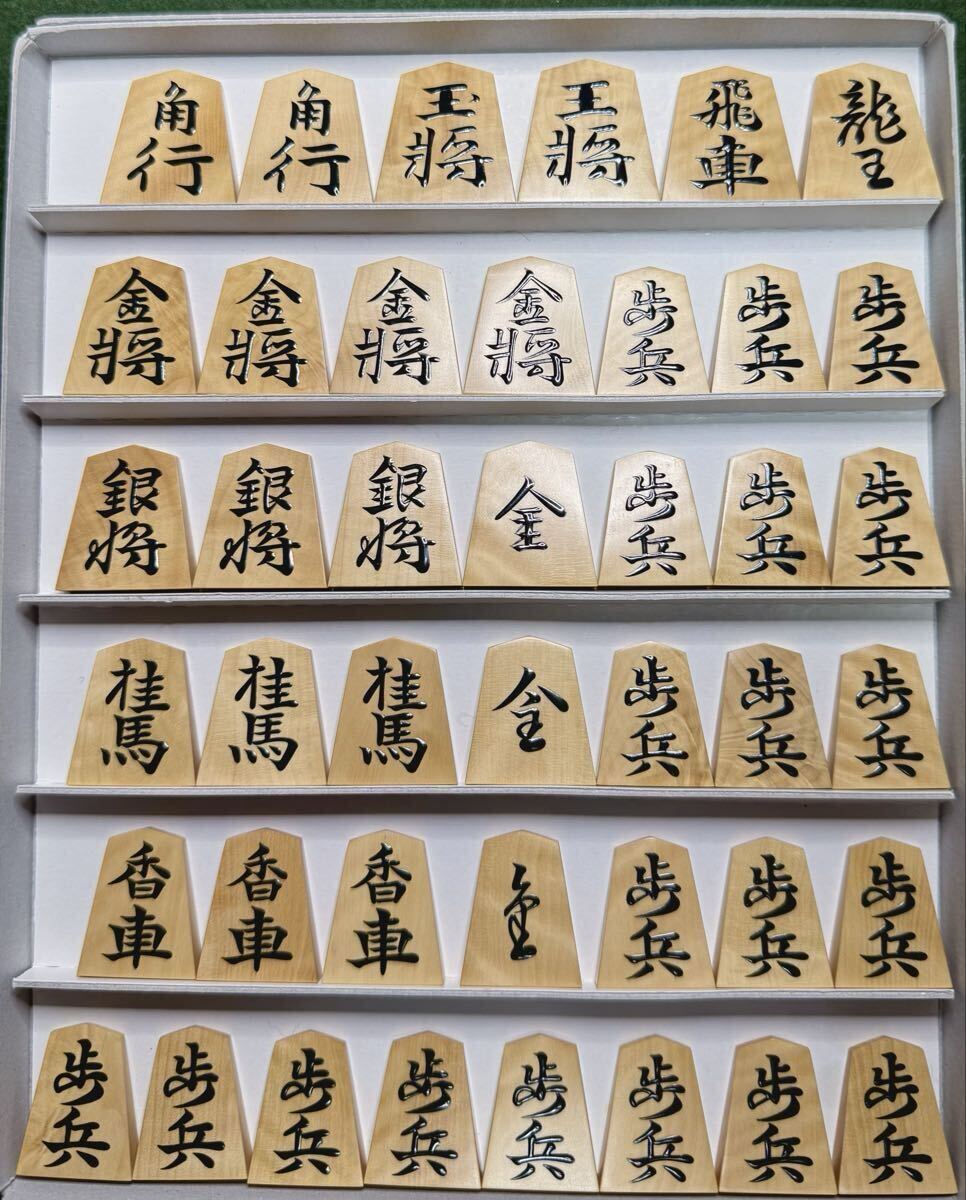 角行 角行 玉將 王將 飛車 龍王
金將 金將 金將 金將 歩兵 歩兵 歩兵
銀将 銀将 銀将 全 歩兵 歩兵 歩兵
桂馬 桂馬 桂馬 全 歩兵 歩兵 歩兵
香車 香車 香車 歩兵 歩兵 歩兵
歩兵 歩兵 歩兵 歩兵 歩兵 歩兵 歩兵 歩兵